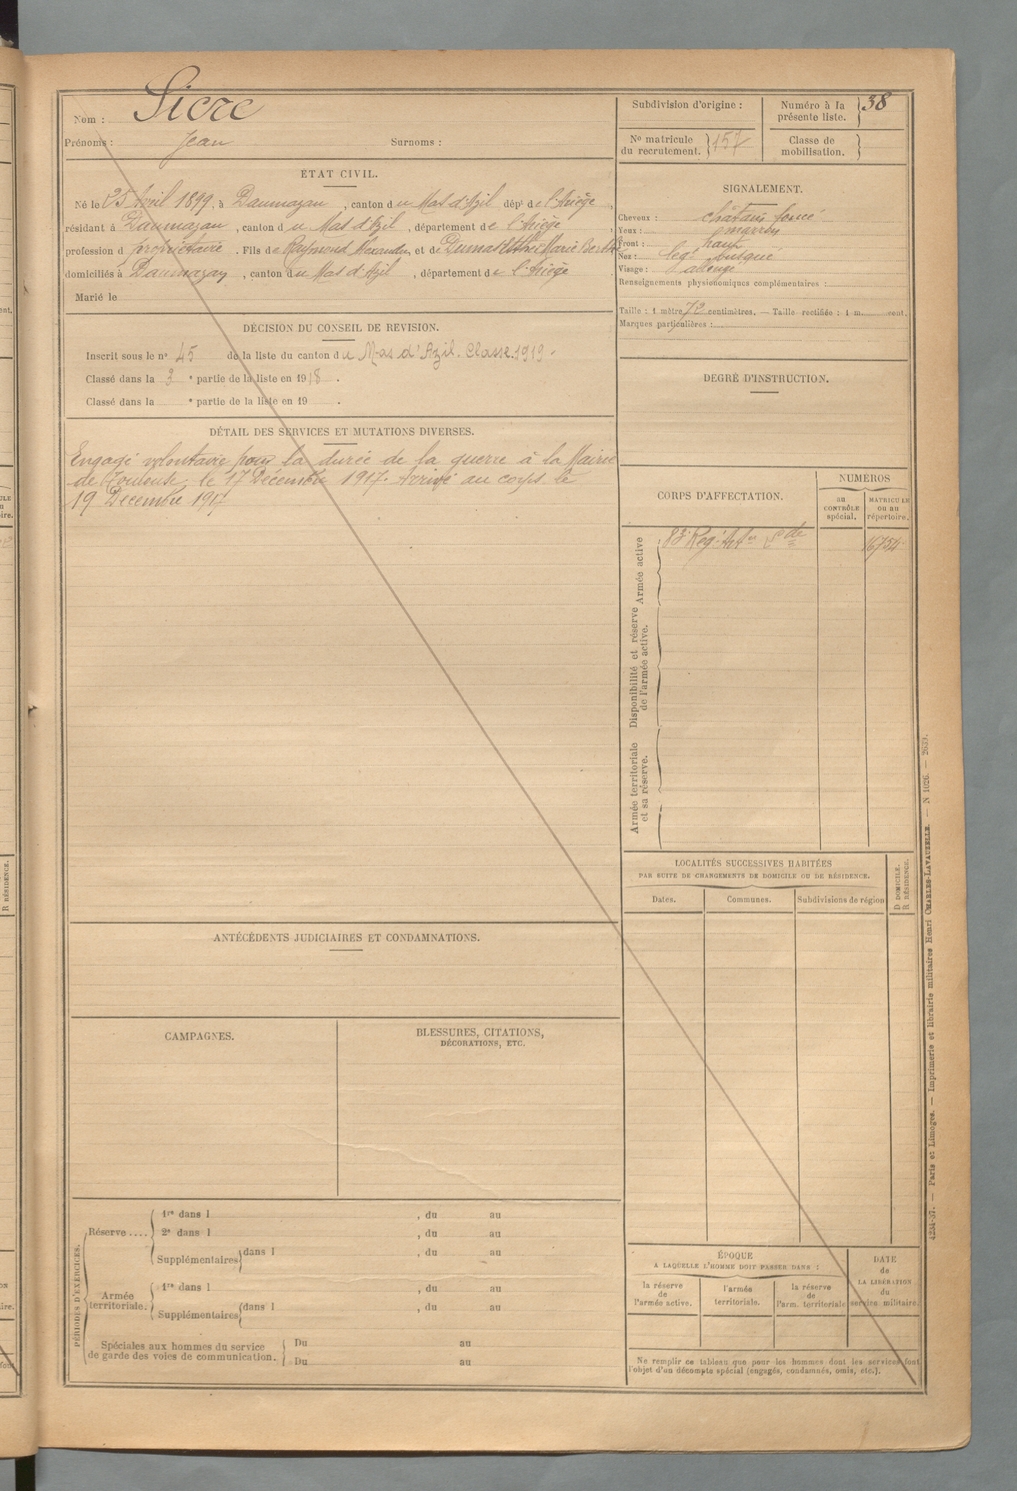 Nom : Sicre
Prénoms : Jean Surnoms :
Subdivision d'origine :
Numéro à la présente liste. 38
No matricule du recrutement. 157
Classe de mobilisation.
ETAT CIVIL.
Né le 25 Avril 1899, à Daumazan, canton du Mas d'Azil dépt de l'Ariège,
résidant à Daumazan, canton du Mas d'Azil, département de l'Ariège,
profession d propriétaire. Fils de Raymond Alexandre, et de Dumas Marie
domiciliés à Daumazan, canton du Mas d'Azil, département de l'Ariège
Marié le
SIGNALEMENT.
Cheveux : châtain foncé
Yeux : marron
Front : haut
Nez : légt busqué
Visage : allongé
Renseignements physionomiques complémentaires :
Taille : 1 mètre 72 centimètres. — Taille rectifiée : 1 m. cent.
Marques particulières :
DÉCISION DU CONSEIL DE REVISION.
Inscrit sous le no 45 de la liste du canton du Mas d'Azil. Classe 1919.
Classé dans la 3 e partie de la liste en 1918.
Classé dans la e partie de la liste en 19 .
DEGRÉ D'INSTRUCTION.
DÉTAIL DES SERVICES ET MUTATIONS DIVERSES.
Engagé volontaire pour la durée de la guerre à la Mairie
de Toulouse, le 17 Décembre 1917. Arrivé au corps le
19 Décembre 1917
CORPS D'AFFECTATION.
NUMÉROS
au CONTRÔLE spécial.
MATRICULE ou au répertoire.
Armée active
Reg. 16754
Disponibilité et réserve de l'armée active.
Armée territoriale et sa réserve.
LOCALITÉS SUCCESSIVES HABITÉES
PAR SUITE DE CHANGEMENTS DE DOMICILE OU DE RÉSIDENCE.
Dates. Communes. Subdivisions de région
D DOMICILE.
R RÉSIDENCE.
ANTÉCÉDENTS JUDICIAIRES ET CONDAMNATIONS.
CAMPAGNES.
BLESSURES, CITATIONS,
DÉCORATIONS, ETC.
PÉRIODES D'EXERCICES.
Réserve....
1re dans l , du au
2e dans l , du au
Supplémentaires dans l , du au
Armée territoriale.
1re dans l , du au
Supplémentaires dans l , du au
Spéciales aux hommes du service
de garde des voies de communication.
Du au
Du au
ÉPOQUE
A LAQUELLE L'HOMME DOIT PASSER DANS :
la réserve de l'armée active.
l'armée territoriale.
la réserve de l'arm. territoriale
DATE de LA LIBÉRATION du service militaire.
Ne remplir ce tableau que pour les hommes dont les services font
l'objet d'un décompte spécial (engagés, condamnés, omis, etc.).
4234-37. — Paris et Limoges. — Imprimerie et librairie militaires Henri CHARLES-LAVAUZELLE. — N 1026. — 2039.